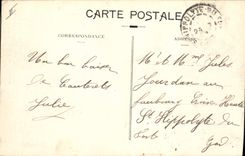 CARTE POSTALE
CORRESPONDANCE
ADRESSE
Un bon baiser
de Cauterets
Julie
Mr et Mme Jules
Jourdan au
faubourg Croix Haute
St Hippolyte du
Fort
Gard